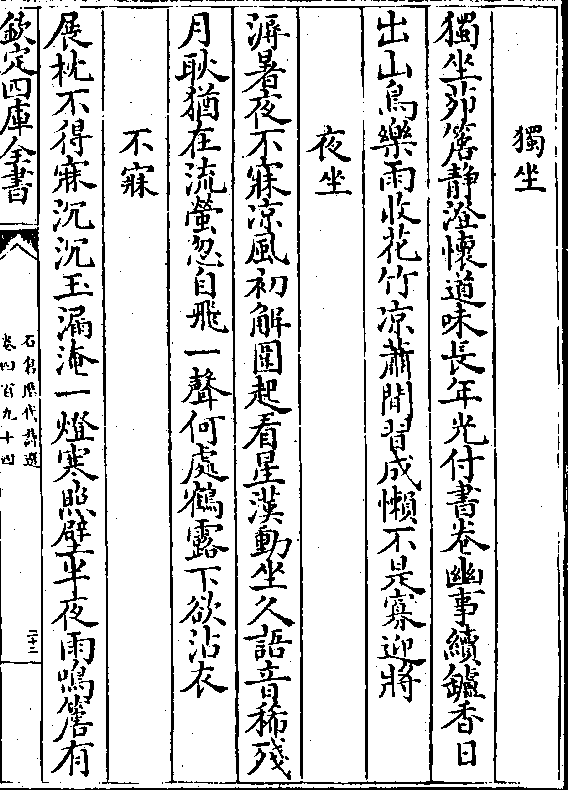 獨坐
獨坐茆簷静澄懷道味長年光付書卷幽事續鑪香日
出山鳥樂雨收花竹凉蕭閒習成懶不是寡迎將
夜坐
溽暑夜不寐凉風初解圍起看星漢動坐久語音稀殘
月耿猶在流螢忽自飛一聲何處鶴露下欲沾衣
不寐
展枕不得寐沉沉玉漏淹一燈寒照壁半夜雨鳴簷有
欽定四庫全書
石倉歷代詩選
卷四百九十四
二十三